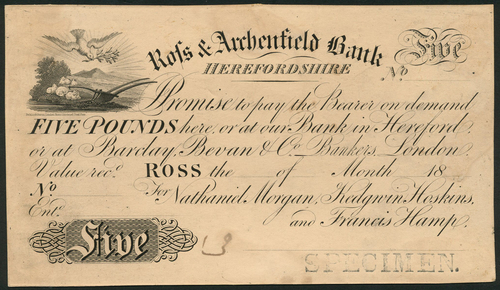 Roſs & Archenfield Bank
Five
HEREFORDSHIRE
No
Promise to pay the Bearer on demand
FIVE POUNDS here, or at our Bank in Hereford,
or at Barclay, Bevan & Co. Bankers, London.
Value recd. ROSS the of Month 18
No
For Nathaniel Morgan, Kedgwin Hoskins,
Entd.
and Francis Hamp.
Five
SPECIMEN.